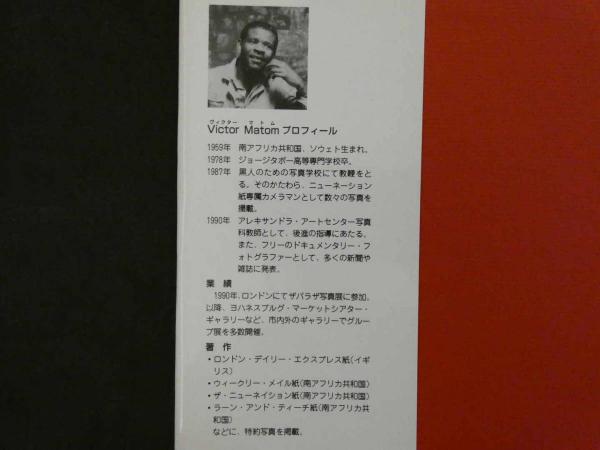 ヴィクター マトム
Victor Matom プロフィール
1959年 南アフリカ共和国、ソウェト生まれ。
1978年 ジョージタボー高等専門学校卒。
1987年 黒人のための写真学校にて教鞭をと
る。そのかたわら、ニューネーション
紙専属カメラマンとして数々の写真を
掲載。
1990年 アレキサンドラ・アートセンター写真
科教師として、後進の指導にあたる。
また、フリーのドキュメンタリー・フ
ォトグラファーとして、多くの新聞や
雑誌に発表。
業績
1990年、ロンドンにてザバラザ写真展に参加。
以降、ヨハネスブルグ・マーケットシアター・
ギャラリーなど、市内外のギャラリーでグルー
プ展を多数開催。
著作
・ロンドン・デイリー・エクスプレス紙(イギ
リス)
・ウィークリー・メイル紙(南アフリカ共和国)
・ザ・ニューネイション紙(南アフリカ共和国)
・ラーン・アンド・ティーチ紙(南アフリカ共
和国)
などに、特約写真を掲載。